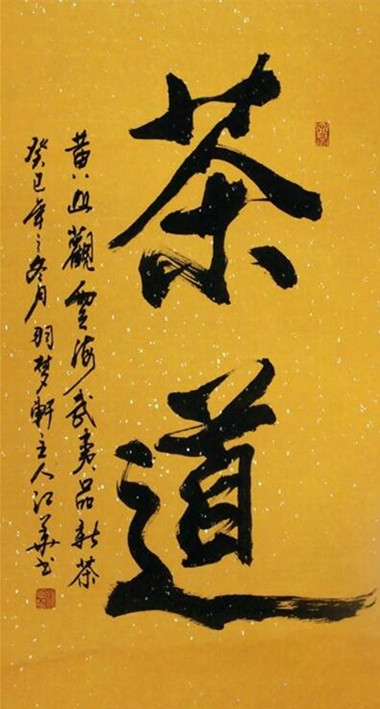 茶道
黄山觀雲海武夷品新茶
癸巳年之冬月羽梦軒主人江華书